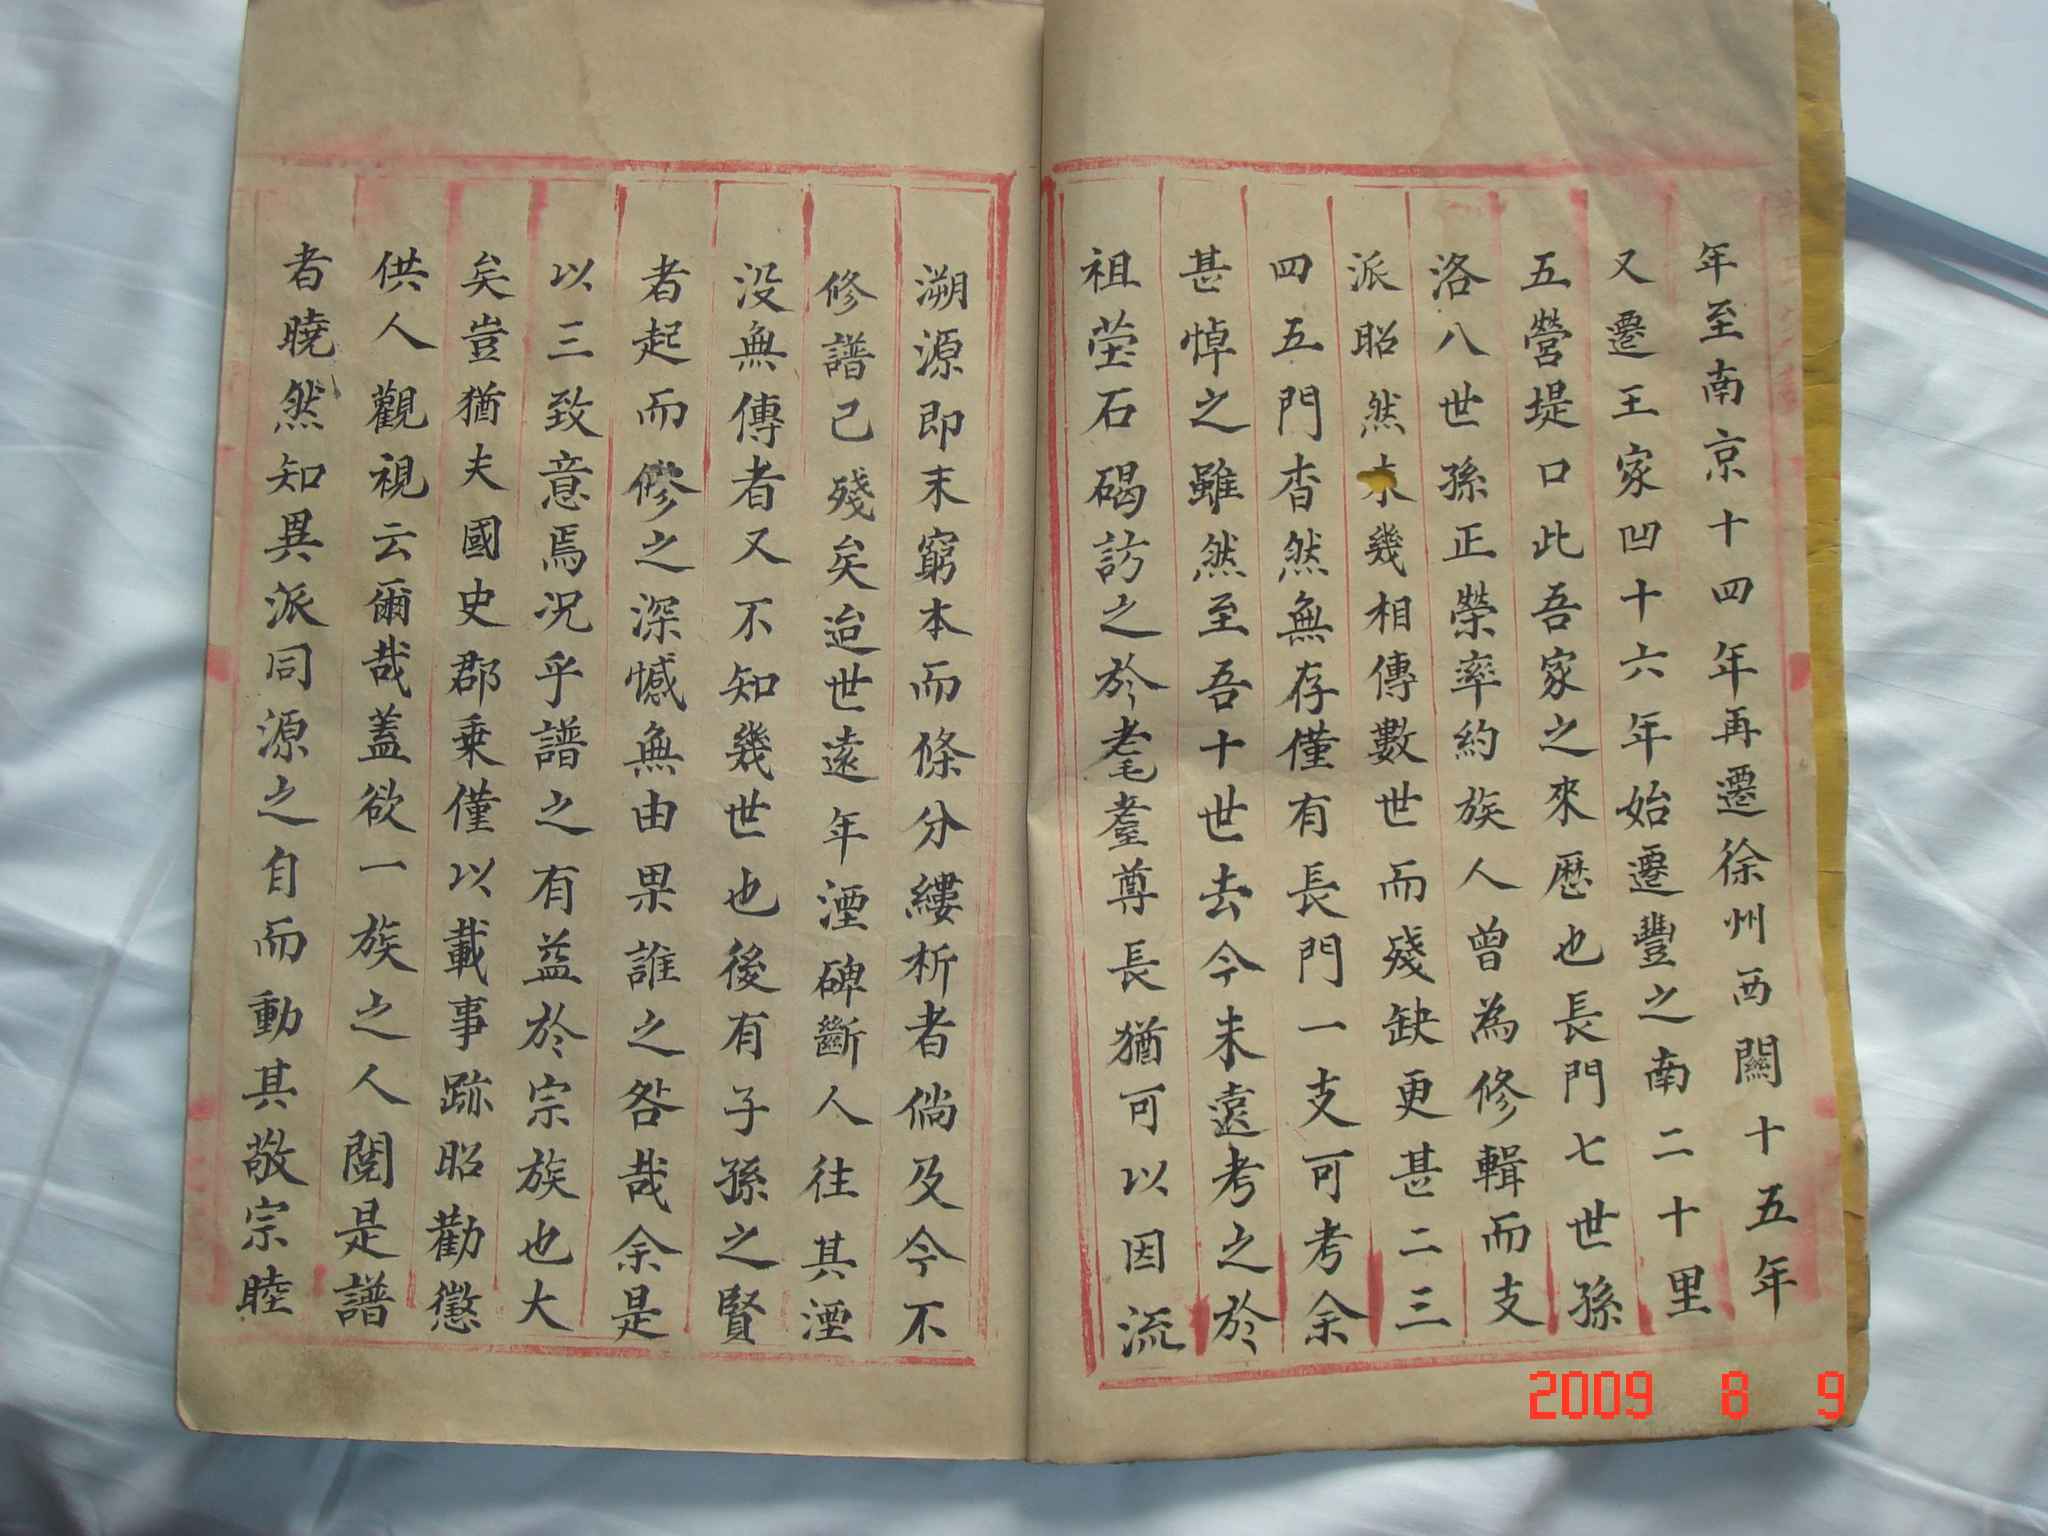 年至南京十四年再遷徐州西關十五年
又遷王家凹十六年始遷豐之南二十里
五營堤口此吾家之來歷也長門七世孫
洛八世孫正榮率約族人曾為修輯而支
派昭然未幾相傳數世而殘缺更甚二三
四五門杳然無存僅有長門一支可考余
甚悼之雖然至吾十世去今未遠考之於
祖塋石碣訪之於耄耋尊長猶可以因流
溯源即末窮本而條分縷析者倘及今不
修譜已殘矣迨世遠年湮碑斷人往其湮
沒無傳者又不知幾世也後有子孫之賢
者起而修之深憾無由果誰之咎哉余是
以三致意焉况乎譜之有益於宗族也大
矣豈猶夫國史郡乗僅以載事跡昭勸懲
供人觀視云爾哉蓋欲一族之人閱是譜
者曉然知異派同源之自而動其敬宗睦
2009 8 9